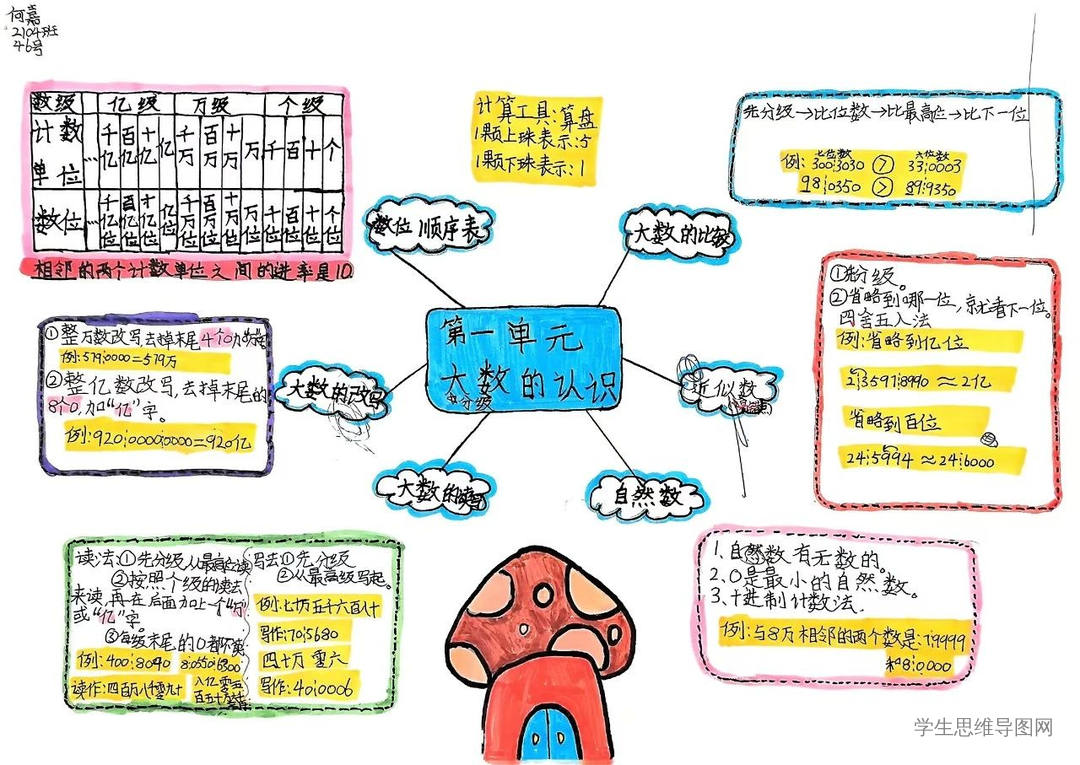 何嘉
2104班
46号
数级 亿级 万级 个级
计数单位 … 千亿 百亿 十亿 亿 千万 百万 十万 万 千 百 十 个
数位 … 千亿位 百亿位 十亿位 亿位 千万位 百万位 十万位 万位 千位 百位 十位 个位
相邻的两个计数单位之间的进率是10
计算工具:算盘
1颗上珠表示:5
1颗下珠表示:1
先分级→比位数→比最高位→比下一位
七位数 六位数
例: 300¦3030 > 33¦0003
98¦0350 > 89¦9350
数位顺序表
大数的比较
第一单元
大数的认识
分级
大数的改写
近似数
大数的读写
自然数
①整万数改写去掉末尾4个0加"万"
例:579¦0000=579万
②整亿数改写,去掉末尾的
8个0,加"亿"字。
例:920¦0000¦0000=920亿
①先分级。
②省略到哪一位,就看下一位。
四舍五入法
例:省略到亿位
2¦3597¦8990≈2亿
省略到百位
24¦5994≈24¦6000
读法:①先分级从最高位读
②按照个级的读法
来读,再在后面加上一个"万"
或"亿"字。
③每级末尾的0都不读
例:400¦8090 8¦0550¦6300
读作:四百万八千零九十
写法①先分级
②从最高级写起。
例:七十万五千六百八十
写作:70¦5680
四十万零六
写作:40¦0006
1、自然数有无数的。
2、0是最小的自然数。
3、十进制计数法.
例:与8万相邻的两个数是:7¦9999
和8¦0000
学生思维导图网